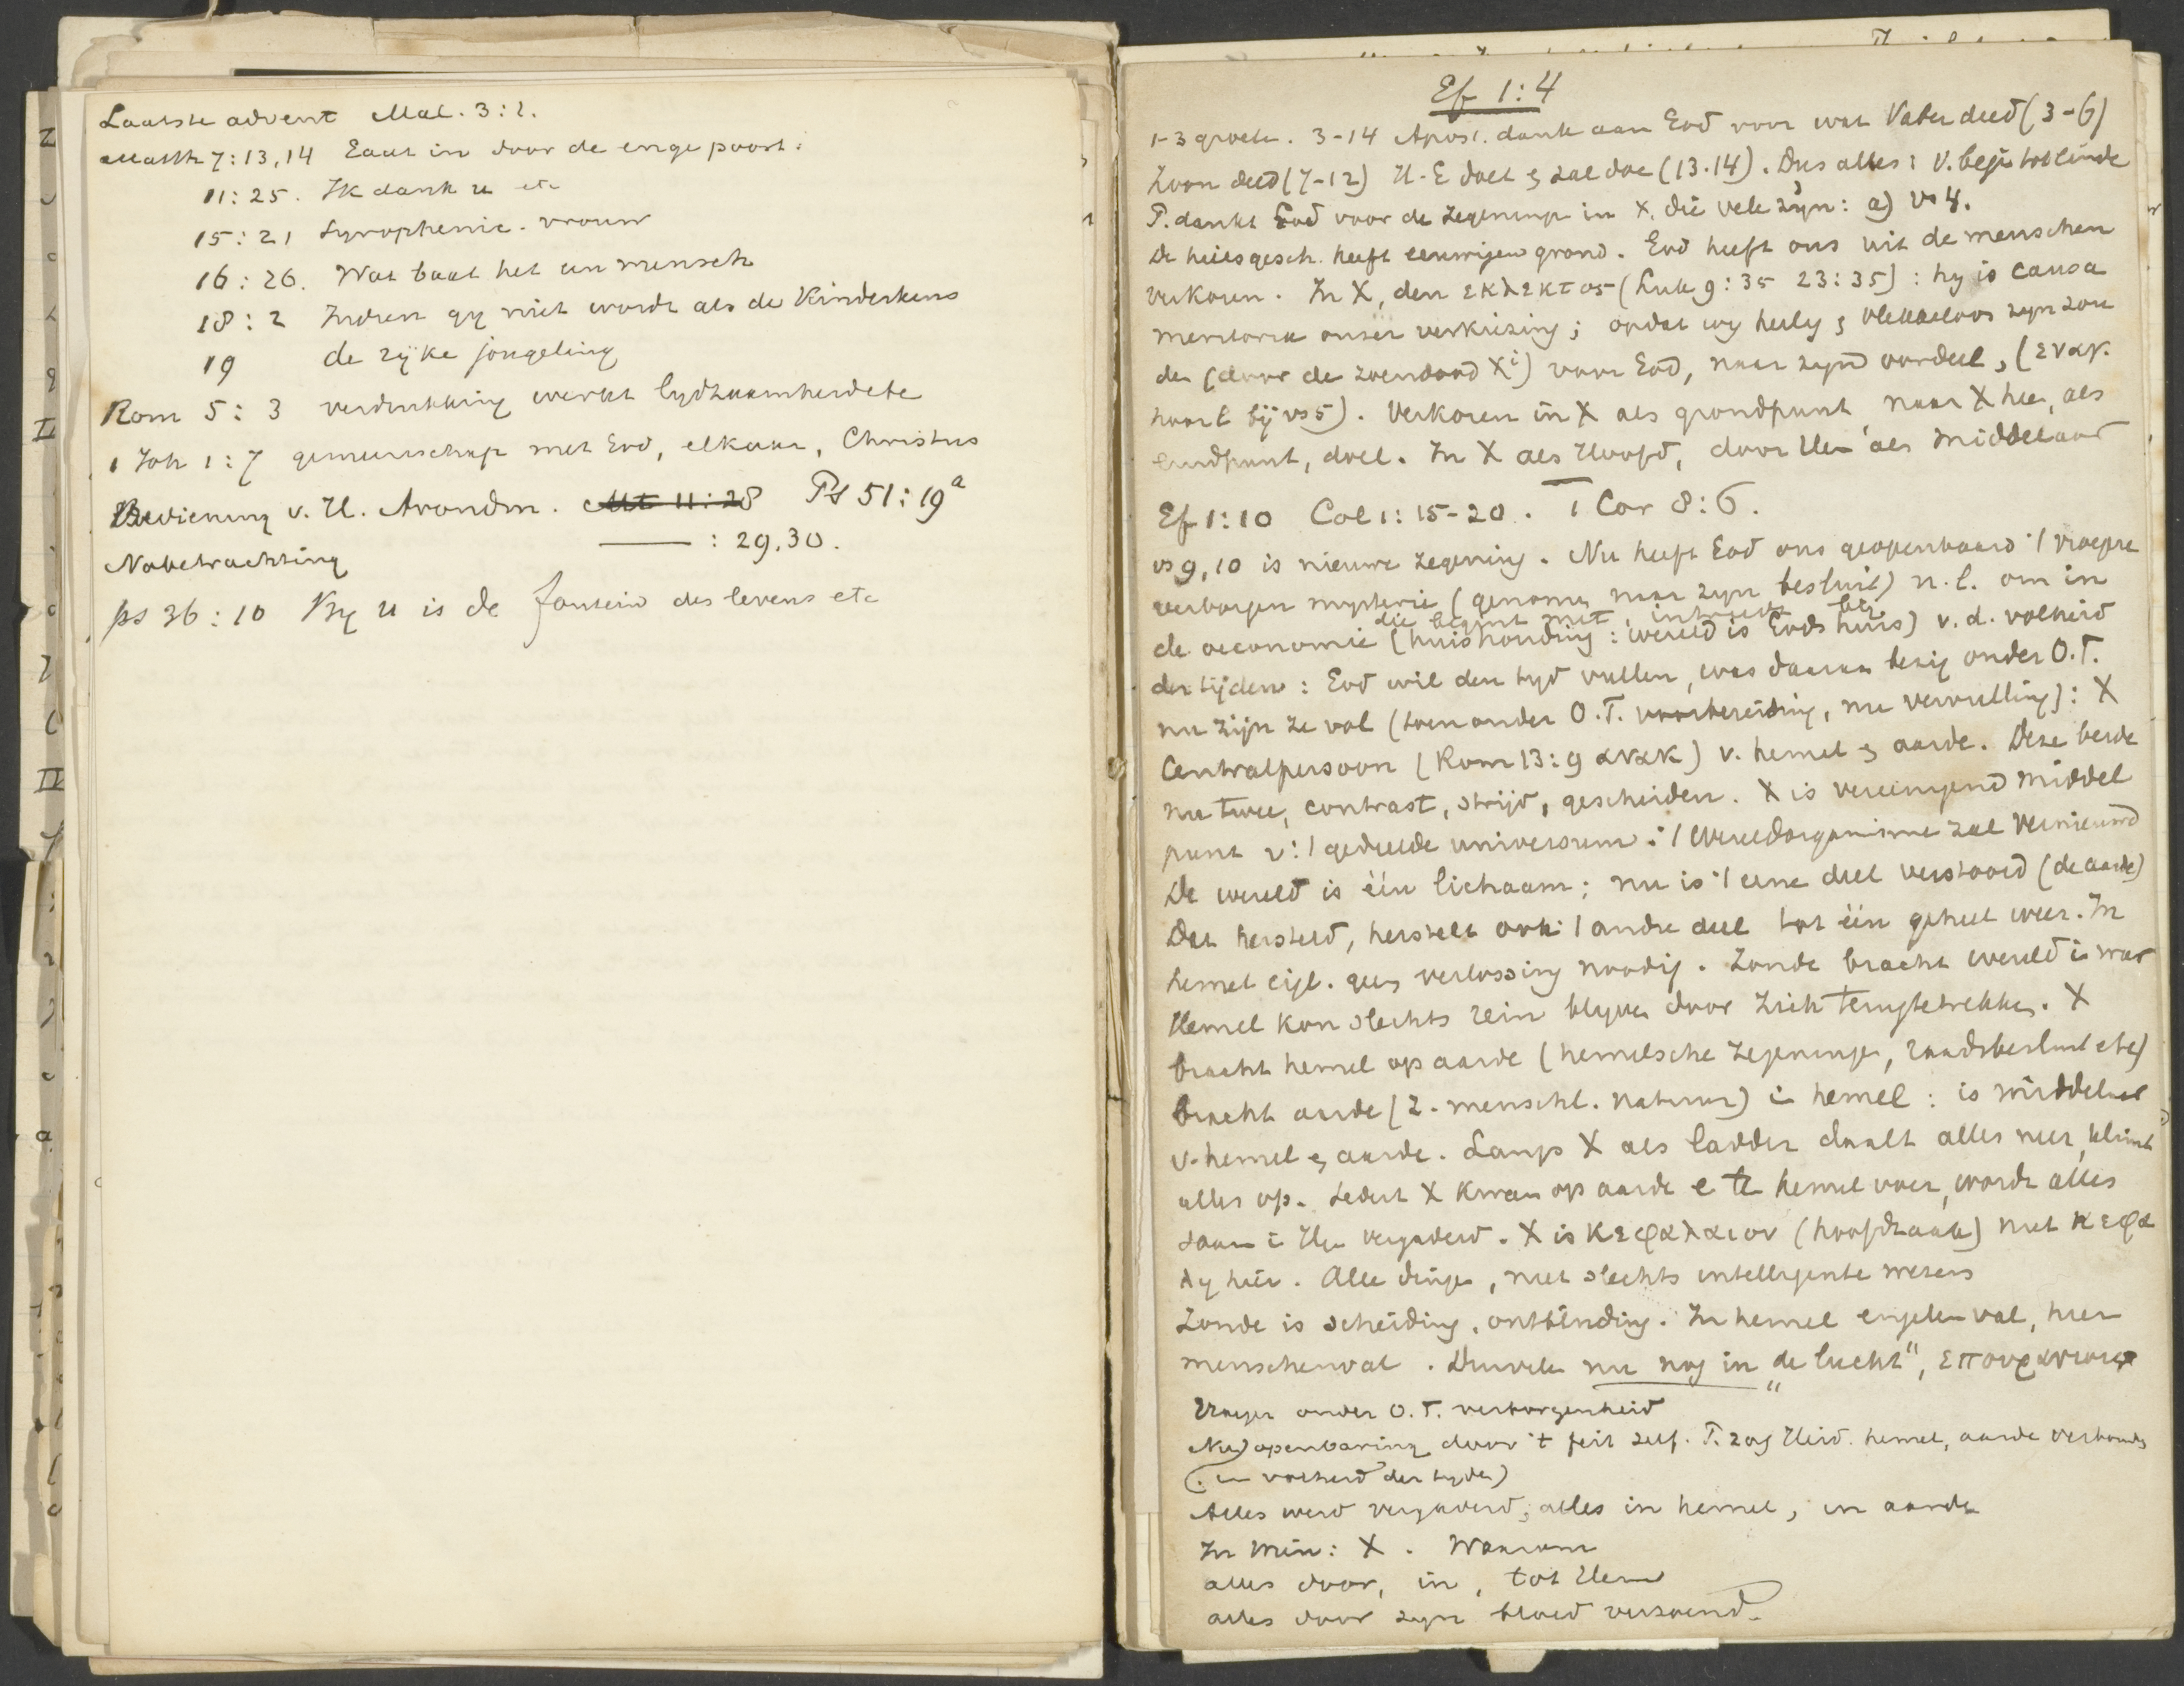 Laatste advent Mal. 3:1.
Matth 7:13,14 Gaat in door de enge poort.
11:25. Ik dank u etc
15:21 Syrophenic. vrouw
16:26. Wat baat het een mensch
18:2 Indien gy niet wordt als de Kinderkens
19 de ryke jongeling
Rom 5:3 verdrukking werkt lydzaamheid etc
1 Joh 1:7 gemeenschap met God, elkaar, Christus
Bediening v. H. Avondm. Mt 11:28 Ps 51:19a
Nabetrachting —— : 29,30.
ps 36:10 By u is de fontein des levens etc
Ef 1:4
1-3 groete. 3-14 Apost. dank aan God voor wat Vader deed (3-6)
Zoon deed (7-12) H.G doet & zal doe (13.14). Dus alles: v. begin tot einde
P. dankt God voor de zegeninge in X, die vele zyn: a) vs 4.
De heilsgesch. heeft eeuwigen grond. God heeft ons uit de menschen
verkoren. In X, den εκλεκτος (Luk 9:35 23:35): hy is causa
meritoria onzer verkiezing; opdat wy heilig & vlekkeloos zyn zou
den (door de zoendood Xi) voor God, naar zyn oordeel, (εν αγ.
hoort bij vs 5). Verkoren in X als grondpunt naar X hen, als
eindpunt, doel. In X als Hoofd, door Hem als Middelaar
Ef 1:10 Col 1:15-20. I Cor 8:6.
vs 9,10 is nieuwe zegening. Nu heeft God ons geopenbaard 't vroegere
verborgen mysterie (genomen naar zyn besluit) n.l. om in
die begint met, intreedt bij
de oeconomie (huishouding: wereld is Gods huis) v.d. volheid
der tijden: God wil den tyd vullen, was daaraan bezig onder O.T.
nu zijn ze vol (toen onder O.T. voorbereiding, nu vervulling): X
Centralpersoon (Rom 13:9 ανακ) v. hemel & aarde. Deze beide
nu twee, contrast, strijd, gescheiden. X is vereenigend middel
punt v. 't gedeelde universum. 't Wereldorganisme zal vernieuwd
De wereld is één lichaam; nu is 't eene deel verstoord (de aarde)
Dat hersteld, herstelt ook 't andre deel tot één geheel weer. In
hemel eigl. geen verlossing noodig. Zonde bracht wereld in war
Hemel kon slechts rein blyven door zich terugtetrekken. X
bracht hemel op aarde (hemelsche zegeninge, raadsbesluit etc)
bracht aarde (z. menschl. natuur) in hemel: is middelaar
v. hemel & aarde. Langs X als ladder daalt alles neer, klimt
alles op. Sedert X kwam op aarde e te hemel voer, wordt alles
saam in Hem vergaderd. X is κεφαλαιον (hoofdzaak) niet κεφα
λη hier. Alle dinge, niet slechts intelligente wezens
Zonde is scheiding, ontbinding. In hemel engelenval, hier
menschenval. Duivelen nu nog in „de lucht", επουρανιοις
Vroeger onder O.T. verborgenheid
Nu) openbaring door 't feit zelf. P. zag Heid. hemel, aarde verbonden
(in volheid der tyden)
Alles werd vergaderd, alles in hemel, en aarde
In Mid: X. Waarom
alles door, in, tot Hem
alles door zyn bloed verzoend.